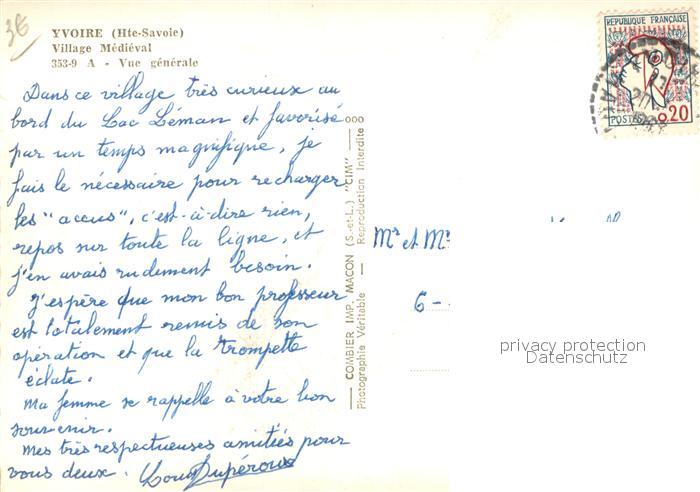 3€
YVOIRE (Hte-Savoie)
Village Médiéval
353-9 A - Vue générale
Dans ce village très curieux au
bord du Lac Léman et favorisé
par un temps magnifique, je
fais le nécessaire pour recharger
les "accus", c'est-à-dire rien,
repos sur toute la ligne, et
j'en avais rudement besoin.
J'espère que mon bon professeur
est totalement remis de son
opération et que la trompette
éclate.
Ma femme se rappelle à votre bon
souvenir.
Mes très respectueuses amitiés pour
vous deux. Louis Dupéroux
COMBIER IMP. MACON (S.-et-L.) "CIM"
Photographie Véritable - Reproduction Interdite
REPUBLIQUE FRANÇAISE
POSTES 0,20
Mr et Me
6 -
privacy protection
Datenschutz